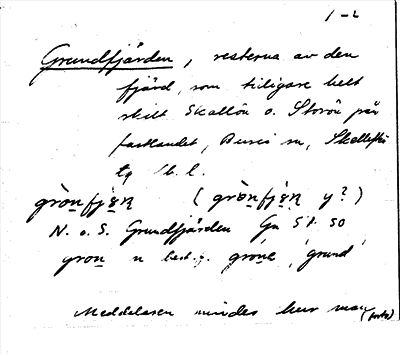 1-2
Grundfjärden, resterna av den
fjärd, som tidigare helt
skilt Skallön o. Storön från
fastlandet, Bureå sn, Skellefteå
tg Vb. l.
grò̤nfjæ̣ṇ (grò̤nfjæ̣ṇ y?)
N. o. S. Grundfjärden Ga 51 50
gron n best. f. grone 'grund'
Meddelaren mindes hur man (forts)